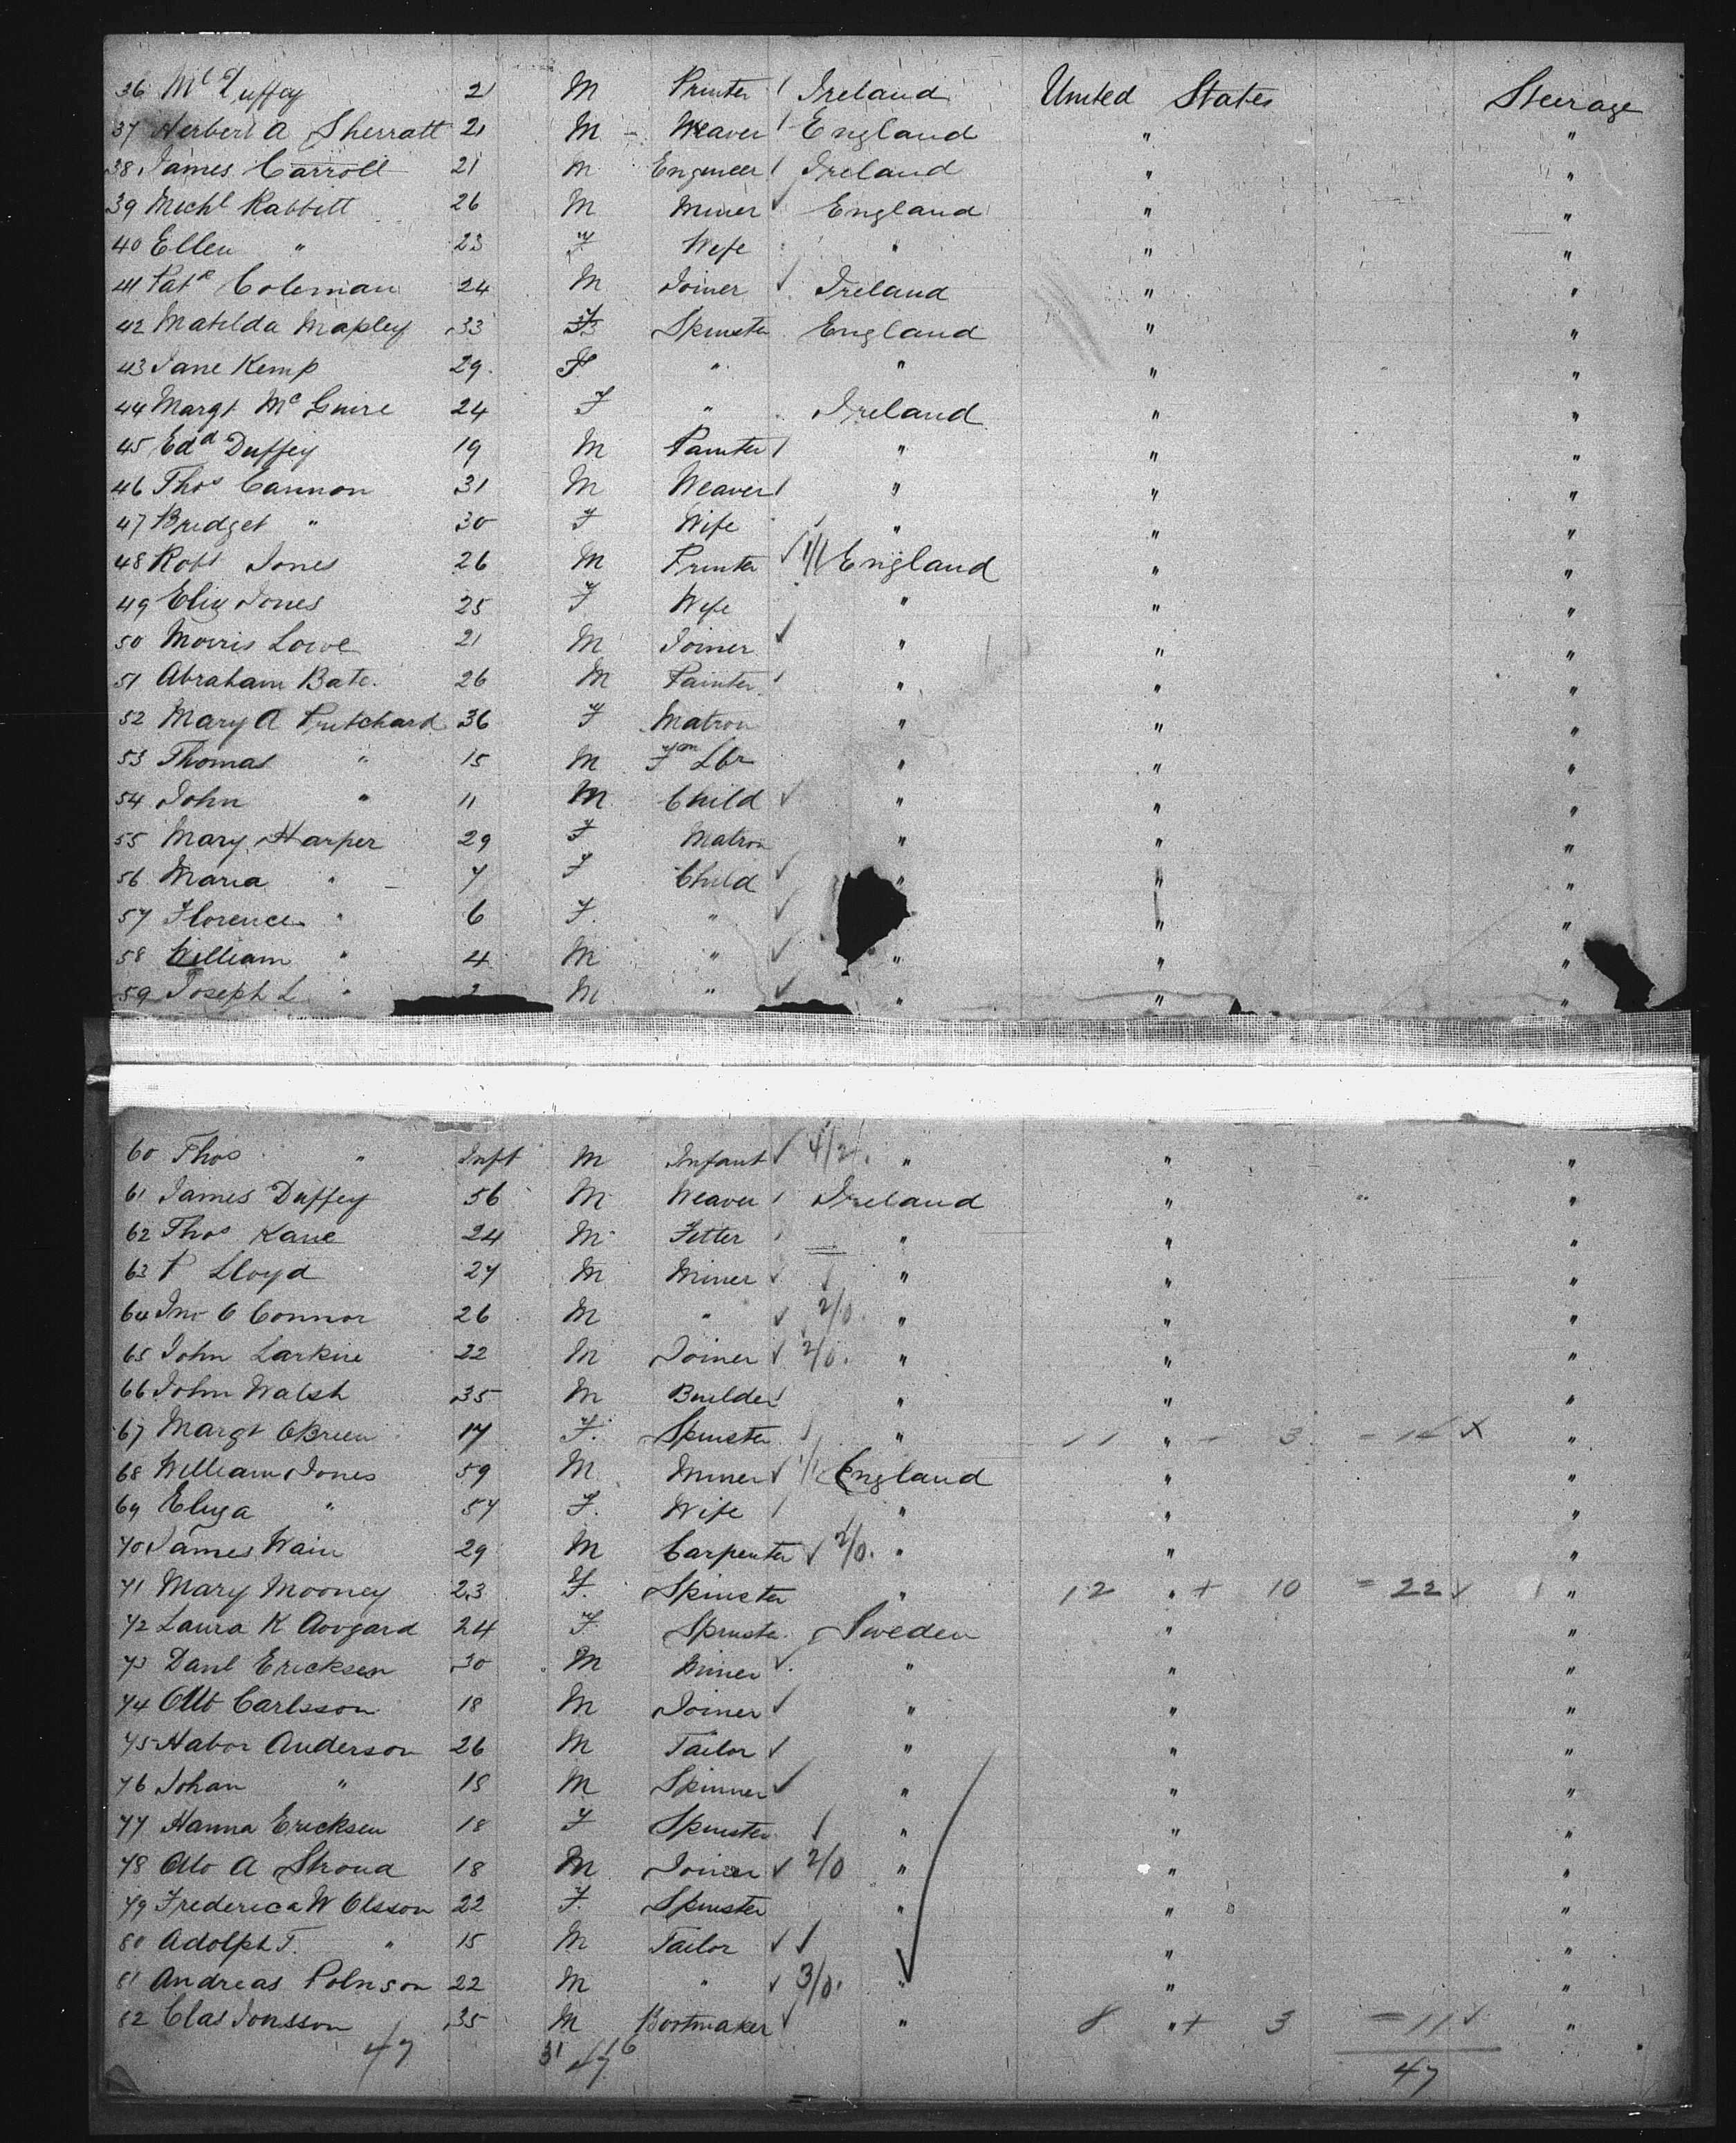 36 Mc Duffey 21 M Printer Ireland United States Steerage
37 Herbert A Sherratt 21 M Weaver England " "
38 James Carroll 21 M Engineer Ireland " "
39 Michl Rabbitt 26 M Miner England " "
40 Ellen " 23 F Wife " " "
41 Patk Coleman 24 M Joiner Ireland " "
42 Matilda Mapley 33 F Spinster England " "
43 Jane Kemp 29 F " " " "
44 Margt McGuire 24 F " Ireland " "
45 Edd Duffey 19 M Painter " " "
46 Thos Cannon 31 M Weaver " " "
47 Bridget " 30 F Wife " " "
48 Robt Jones 26 M Printer 1/1 England " "
49 Eliz Jones 25 F Wife " " "
50 Morris Lowe 21 M Joiner " " "
51 Abraham Bate 26 M Painter " " "
52 Mary A Pritchard 36 F Matron " " "
53 Thomas " 15 M Fm Lbr " " "
54 John " 11 M Child " " "
55 Mary Harper 29 F Matron " " "
56 Maria " 7 F Child " " "
57 Florence " 6 F " " " "
58 William " 4 M " " " "
59 Joseph L " M " " " "
60 Thos " Inft M Infant 4/2 " " "
61 James Duffey 56 M Weaver Ireland " "
62 Thos Kane 24 M Fitter " " "
63 P Lloyd 27 M Miner " " "
64 Jno O Connor 26 M " 2/0 " " "
65 John Larkin 22 M Joiner 2/0 " " "
66 John Walsh 35 M Builder " " "
67 Margt OBrien 17 F Spinster " 11 " 3 = 14 "
68 William Jones 59 M Miner 1/1 England " "
69 Eliza " 57 F Wife " " "
70 James Wain 29 M Carpenter 2/0 " " "
71 Mary Mooney 23 F Spinster " 12 " + 10 = 22 "
72 Laura K Aovgard 24 F Spinster Sweden " "
73 Danl Ericksen 30 M Miner " " "
74 Otto Carlsson 18 M Joiner " " "
75 Habor Anderson 26 M Tailor " " "
76 Johan " 18 M Spinner " " "
77 Hanna Ericksen 18 F Spinster " " "
78 Otto A Strond 18 M Joiner 2/0 " " "
79 Frederica W Olsson 22 F Spinster " " "
80 Adolph T. " 15 M Tailor " " "
81 Andreas Polnson 22 M " 3/0 " " "
82 Clas Jonsson 35 M Bootmaker " 8 " + 3 = 11 "
47 31 16 47 47